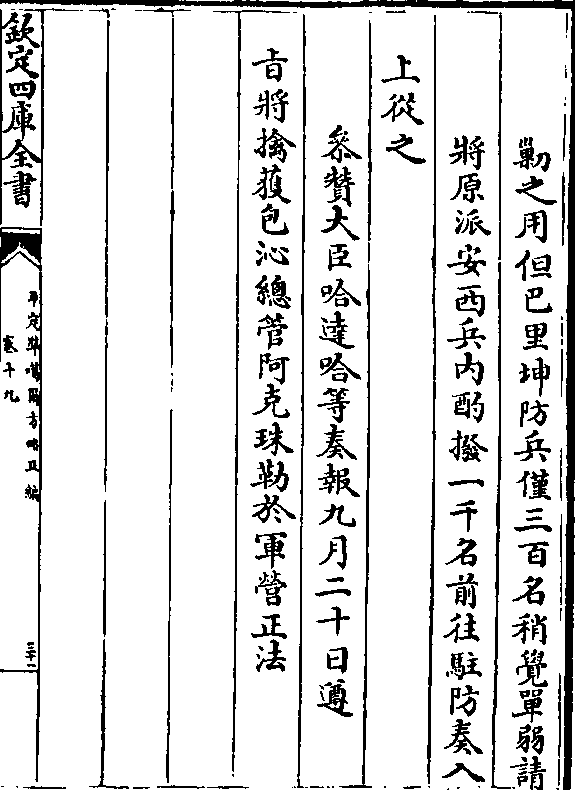 勦之用但巴里坤防兵僅三百名稍覺單弱請
將原派安西兵内酌撥一千名前往駐防奏入
上從之
叅贊大臣哈達哈等奏報九月二十日遵
㫖將擒獲包沁總管阿克珠勒於軍營正法
欽定四庫全書
平定準噶爾方畧正編
卷十九
三十一